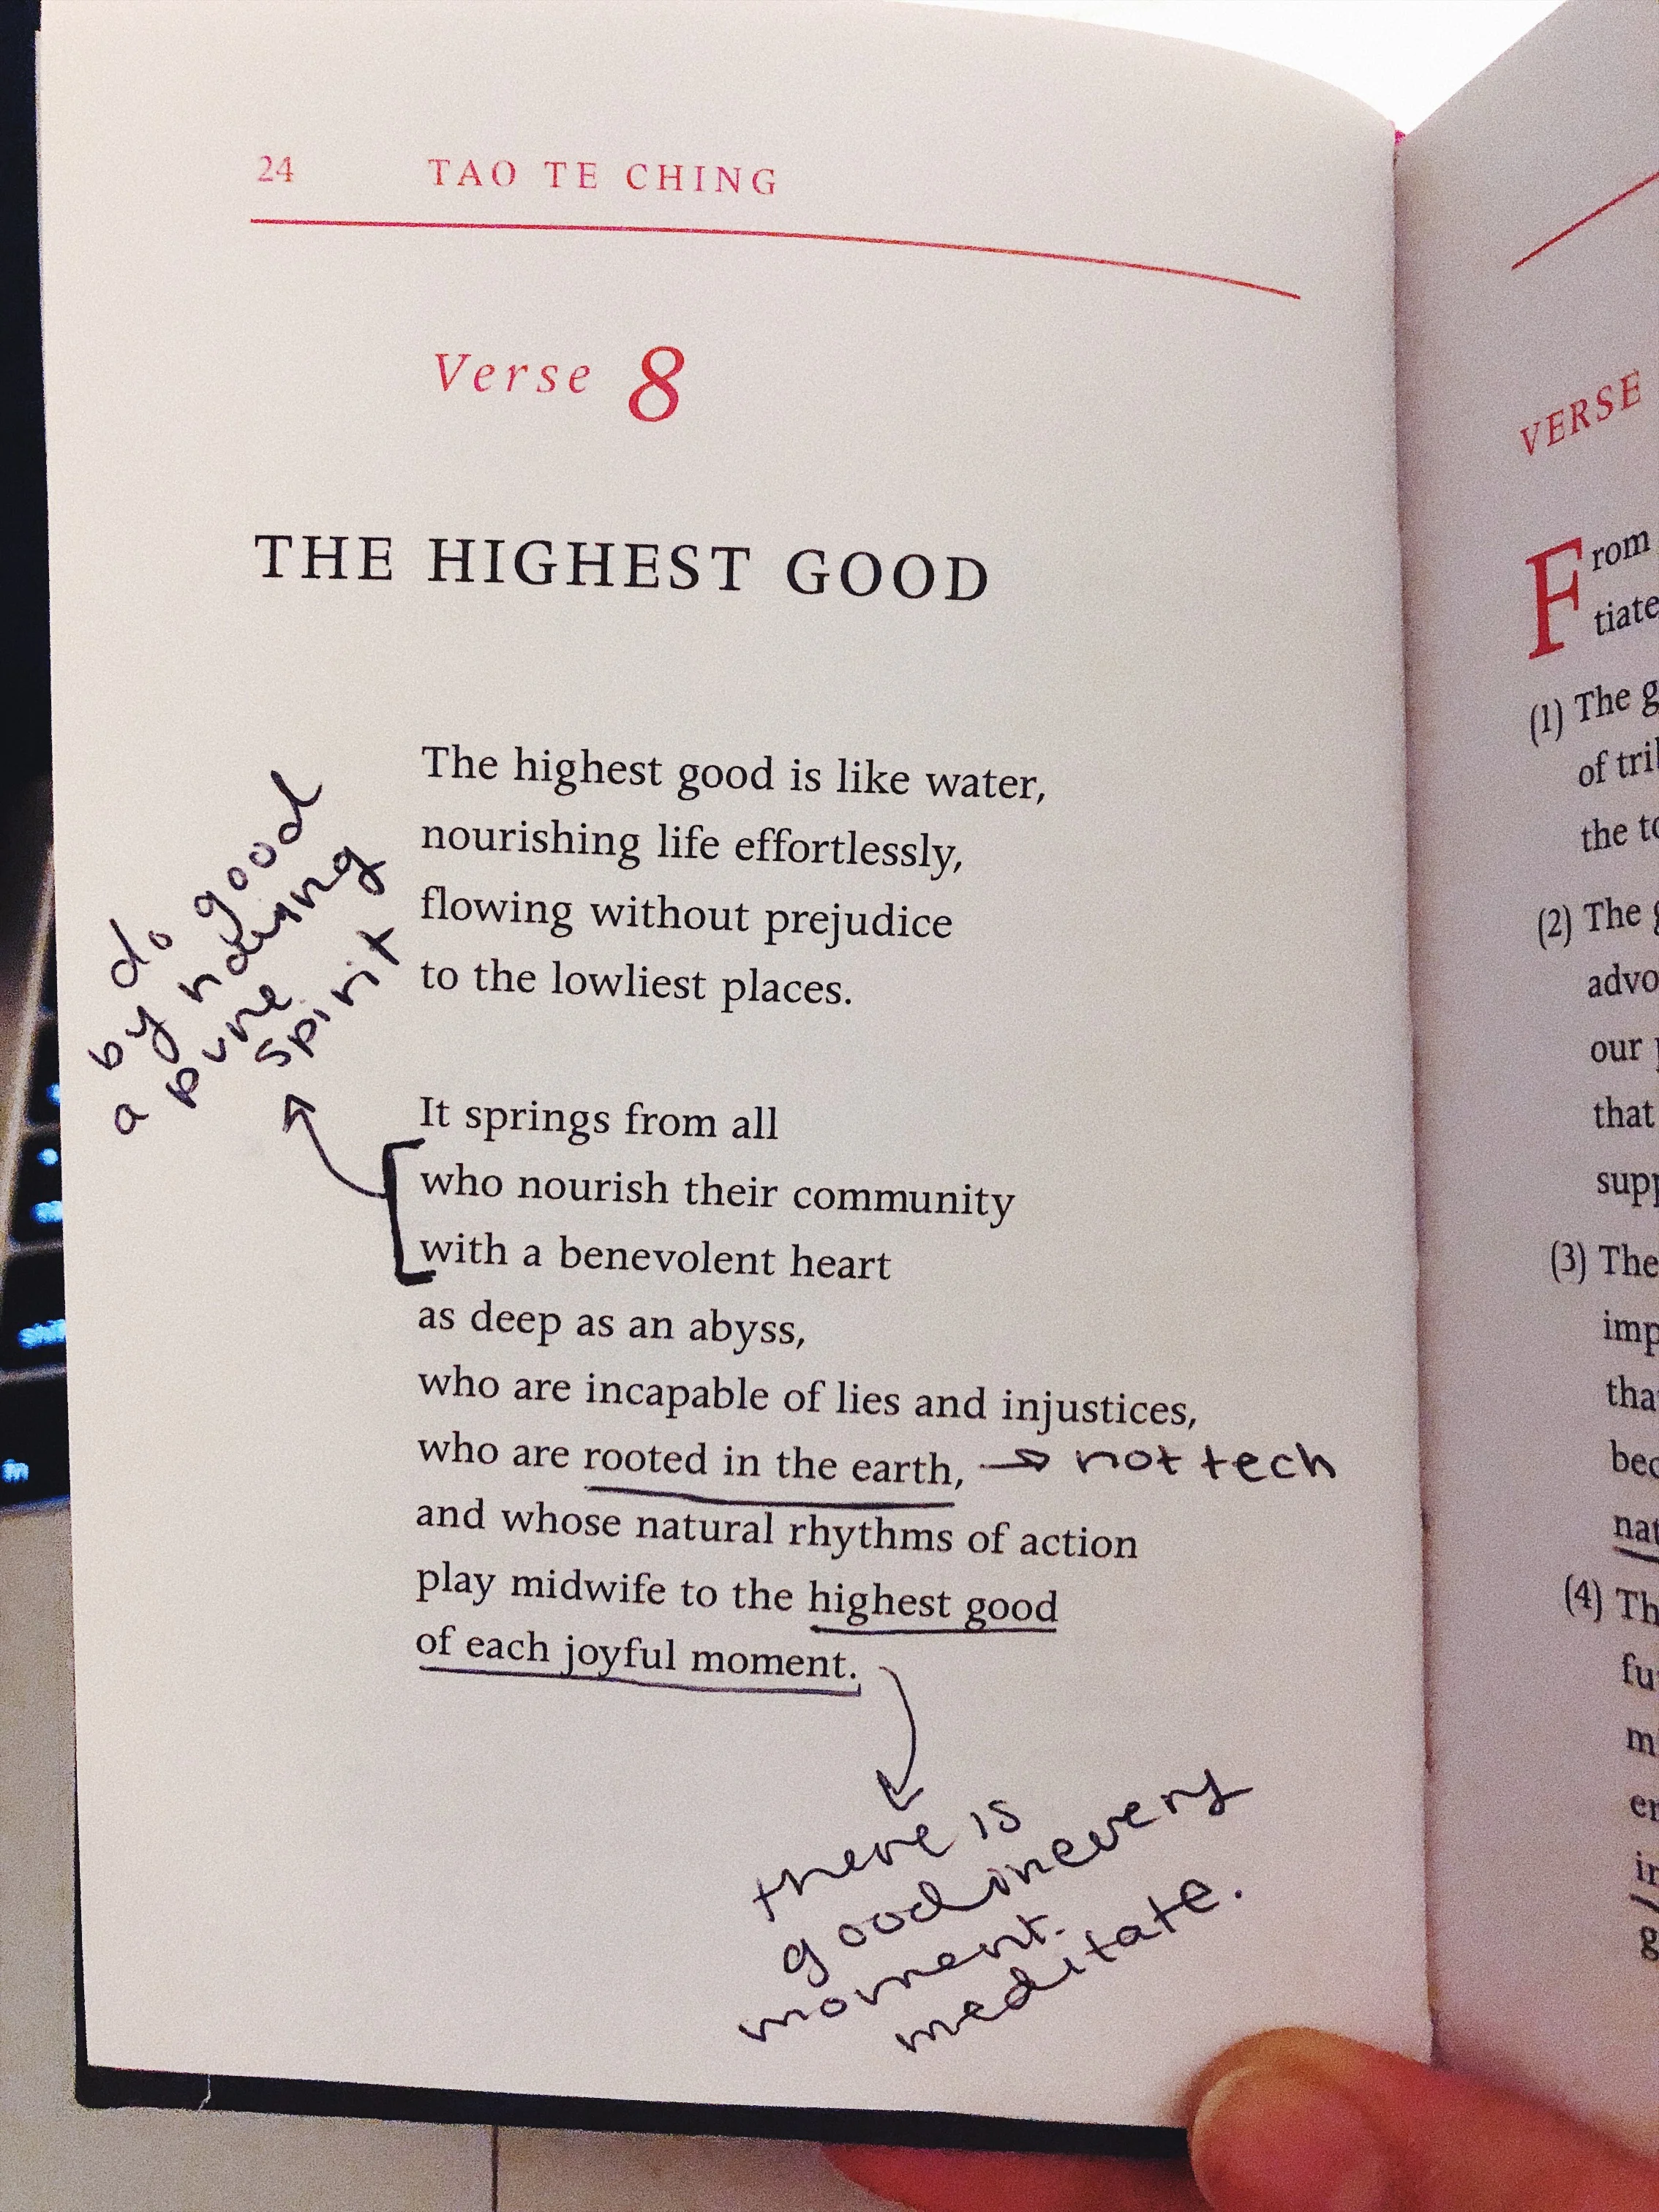 24 TAO TE CHING
Verse 8
THE HIGHEST GOOD
The highest good is like water,
nourishing life effortlessly,
flowing without prejudice
to the lowliest places.
do good
by
a pure
spirit
It springs from all
who nourish their community
with a benevolent heart
as deep as an abyss,
who are incapable of lies and injustices,
who are rooted in the earth, → not tech
and whose natural rhythms of action
play midwife to the highest good
of each joyful moment.
there is
good in every
moment.
meditate.
VERSE
From
tiate
(1) The g
of tri
the to
(2) The g
advo
our
that
supp
(3) The
imp
tha
bec
nat
(4) Th
fu
m
er
in
g
shift